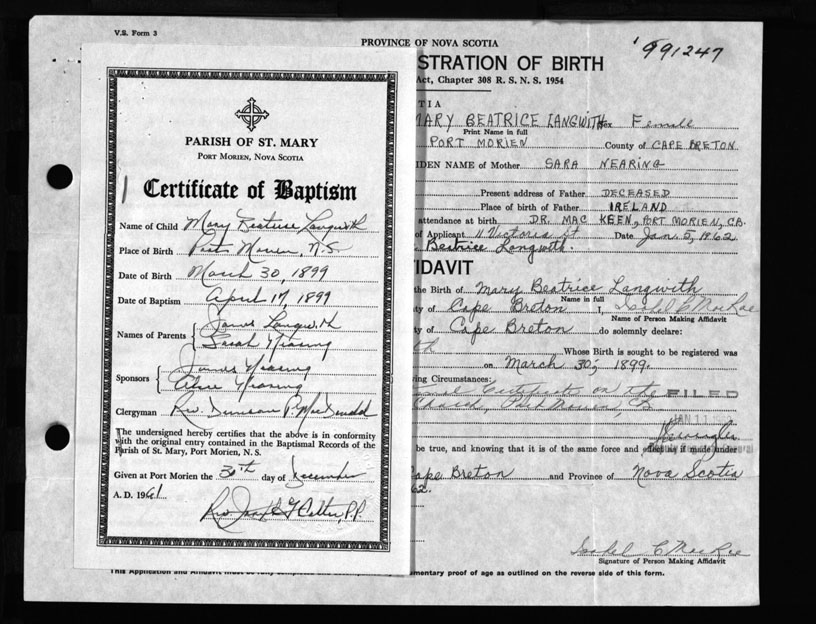 V.S. Form 3
PROVINCE OF NOVA SCOTIA
991247
STRATION OF BIRTH
Act, Chapter 308 R. S. N. S. 1954
PARISH OF ST. MARY
PORT MORIEN, NOVA SCOTIA
Certificate of Baptism
Name of Child Mary Beatrice Langwith
Place of Birth Port Morien, N.S.
Date of Birth March 30, 1899
Date of Baptism April 17, 1899
Names of Parents James Langwith
Sarah Nearing
Sponsors James Nearing
Nearing
Clergyman Rev. Duncan P. MacDonald
The undersigned hereby certifies that the above is in conformity
with the original entry contained in the Baptismal Records of the
Parish of St. Mary, Port Morien, N. S.
Given at Port Morien the 30th day of December
A. D. 1961
Rev. P.P.
TIA
MARY BEATRICE LANGWITH Sex Female
Print Name in full
PORT MORIEN County of CAPE BRETON
IDEN NAME of Mother SARA NEARING
Present address of Father DECEASED
Place of birth of Father IRELAND
attendance at birth DR. MAC KEEN, PORT MORIEN, CB.
of Applicant 11 Victoria St Date Jan. 5, 1962
Beatrice Langwith
FIDAVIT
the Birth of Mary Beatrice Langwith
Name in full
ty of Cape Breton I, Isabel C MacRae
Name of Person Making Affidavit
ty of Cape Breton do solemnly declare:
th Whose Birth is sought to be registered was
on March 30, 1899.
ing Circumstances:
Certificate on the FILED
Church, Port Morien, CB
JAN 11
be true, and knowing that it is of the same force and effect as if made under
Cape Breton and Province of Nova Scotia
62.
Isabel C MacRae
Signature of Person Making Affidavit
This Application and Affidavit must be fully mentary proof of age as outlined on the reverse side of this form.